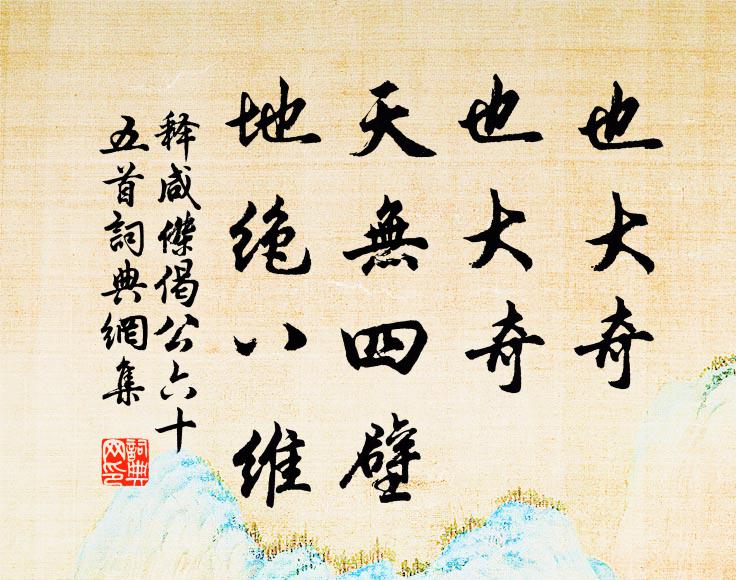 也大奇
也大奇
天無四壁
地絶八維
释咸傑偈公六十
五首詞典網集
詞典
网印